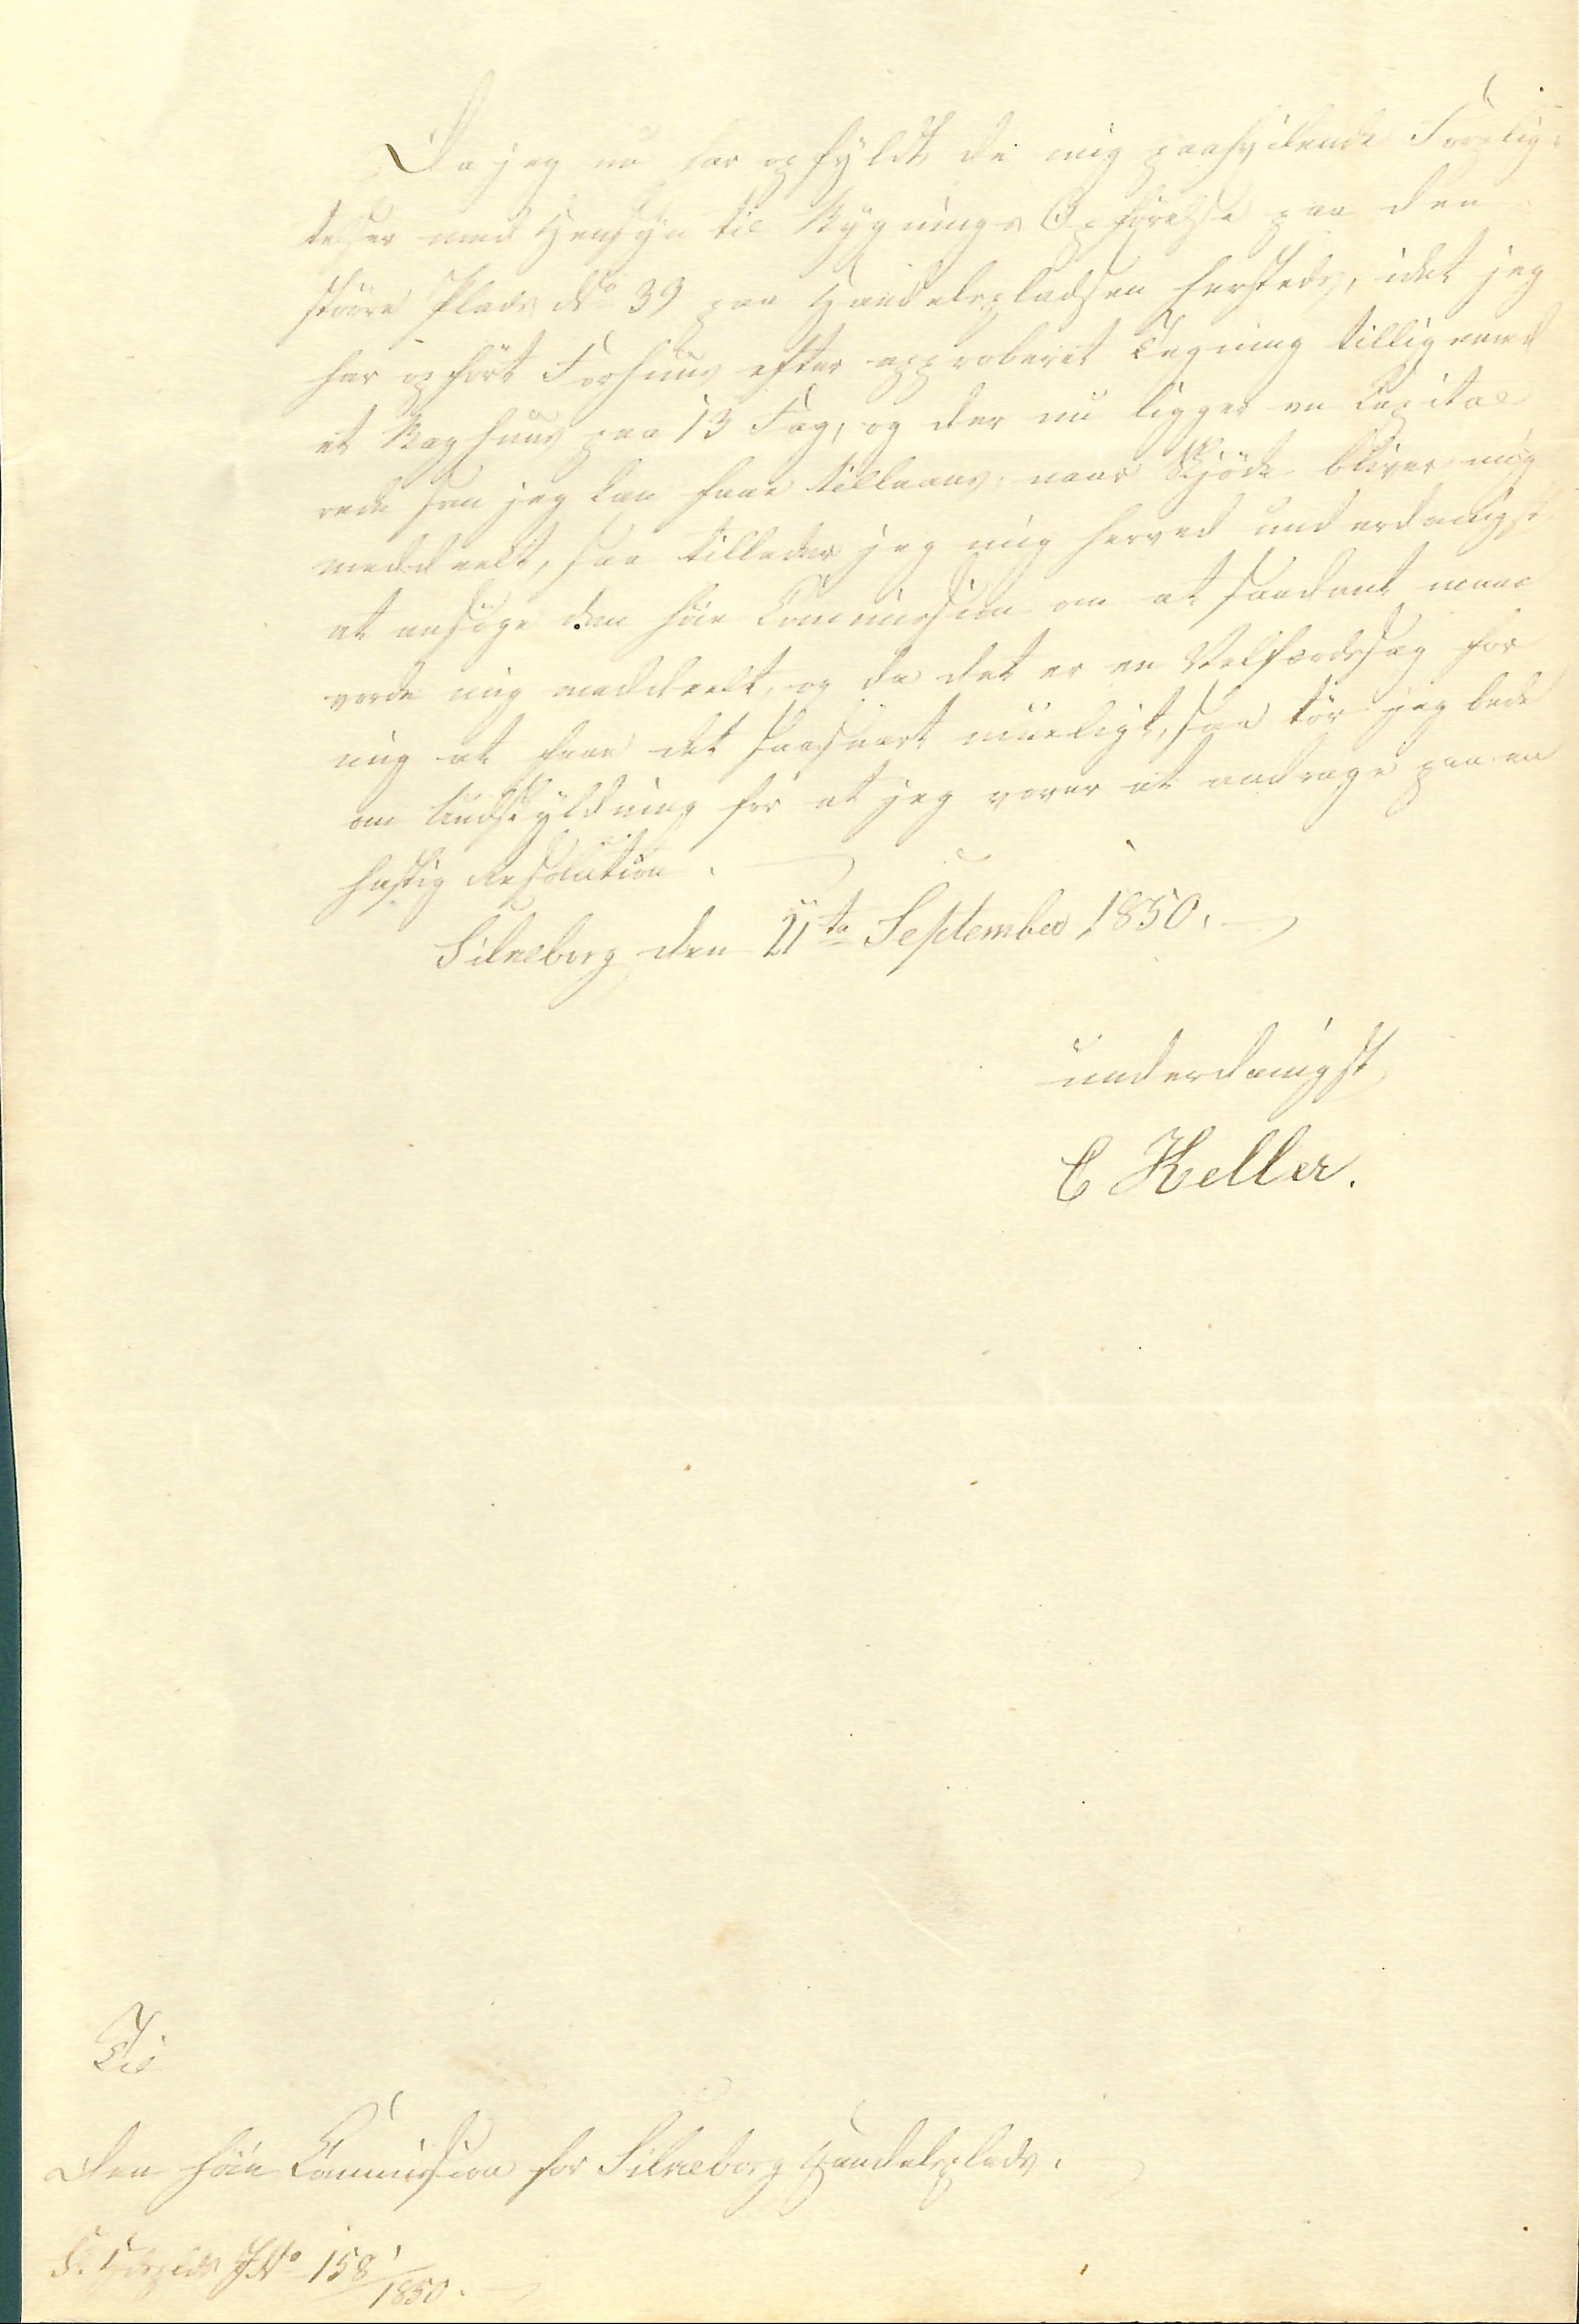 Da jeg nu har opfyldt de mig paahvilende Forplig-
telser med Hensyn til Bygnings Opførelse paa den
større Plads No 39 paa Handelspladsen hersteds, idet jeg
har opført Forhuus efter approberet Tegning tilligemed
et Baghuus paa 13 Fag, og der nu ligger en Capital
rede som jeg kan faae tillaans, naar Skjøde bliver mig
meddeelt, saa tillader jeg mig herved underdanigst
at ansøge den høie Commission om at saadant maae
vorde mig meddeelt, og da det er en Velfærdssag for
mig at faae det saasnart mueligt, saa tør jeg bede
om Undskyldning for at jeg vover at andrage paa en
hastig Resolution.
Silkeborg den 21te September 1850.
underdanigst
C Keller.
Til
Den høie Commission for Silkeborg Handelsplads.
S. Hdlsplds JNo 158/1850.